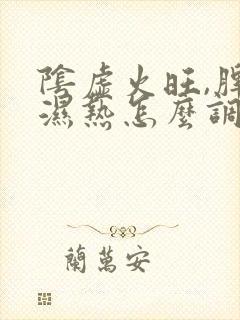 陰虛火旺,脾
濕熱怎麼調
蘭萬安